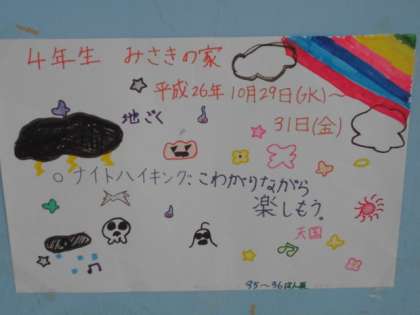 4年生 みさきの家
平成26年10月29日(水)～
31日(金)
地ごく
○ナイトハイキング、こわがりながら
楽しもう。
天国